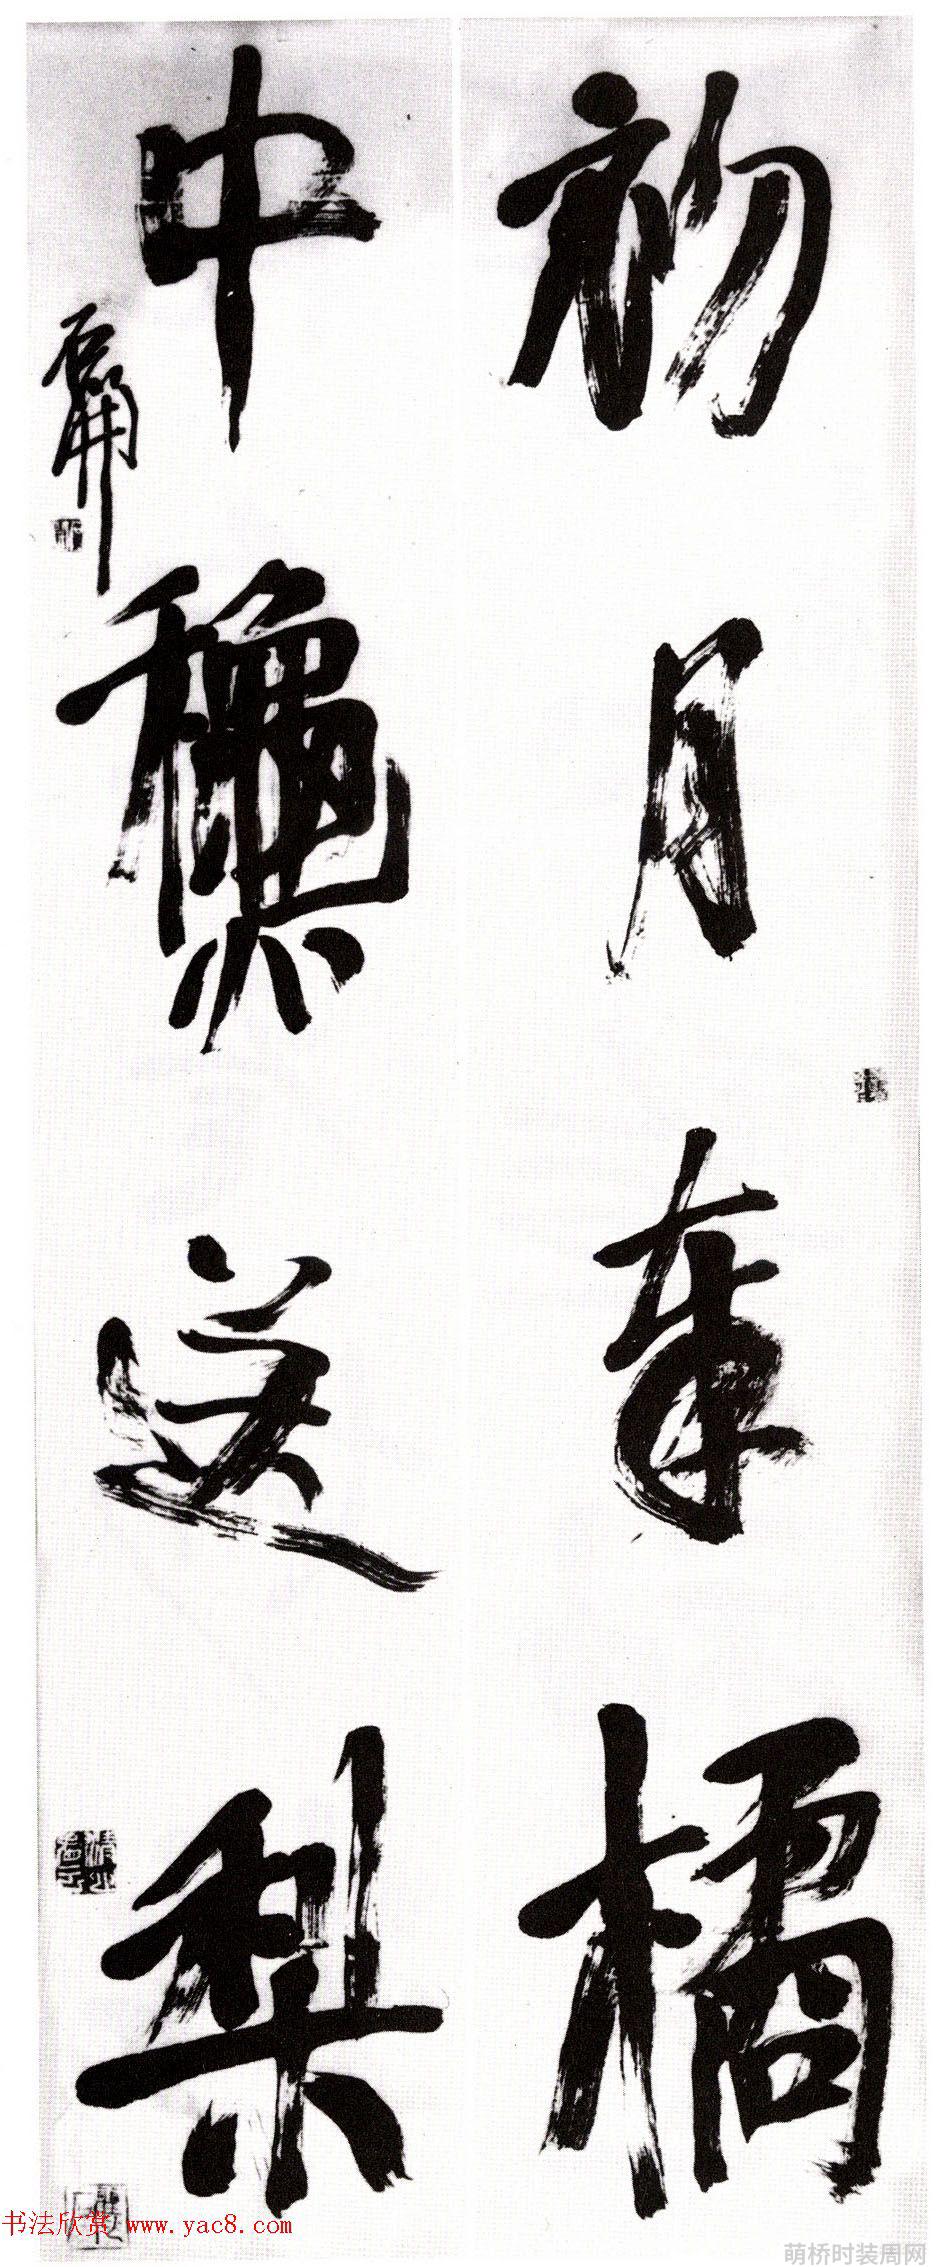 初月奉橘
中龝送梨
书法欣赏 www.yac8.com
萌桥时装周网